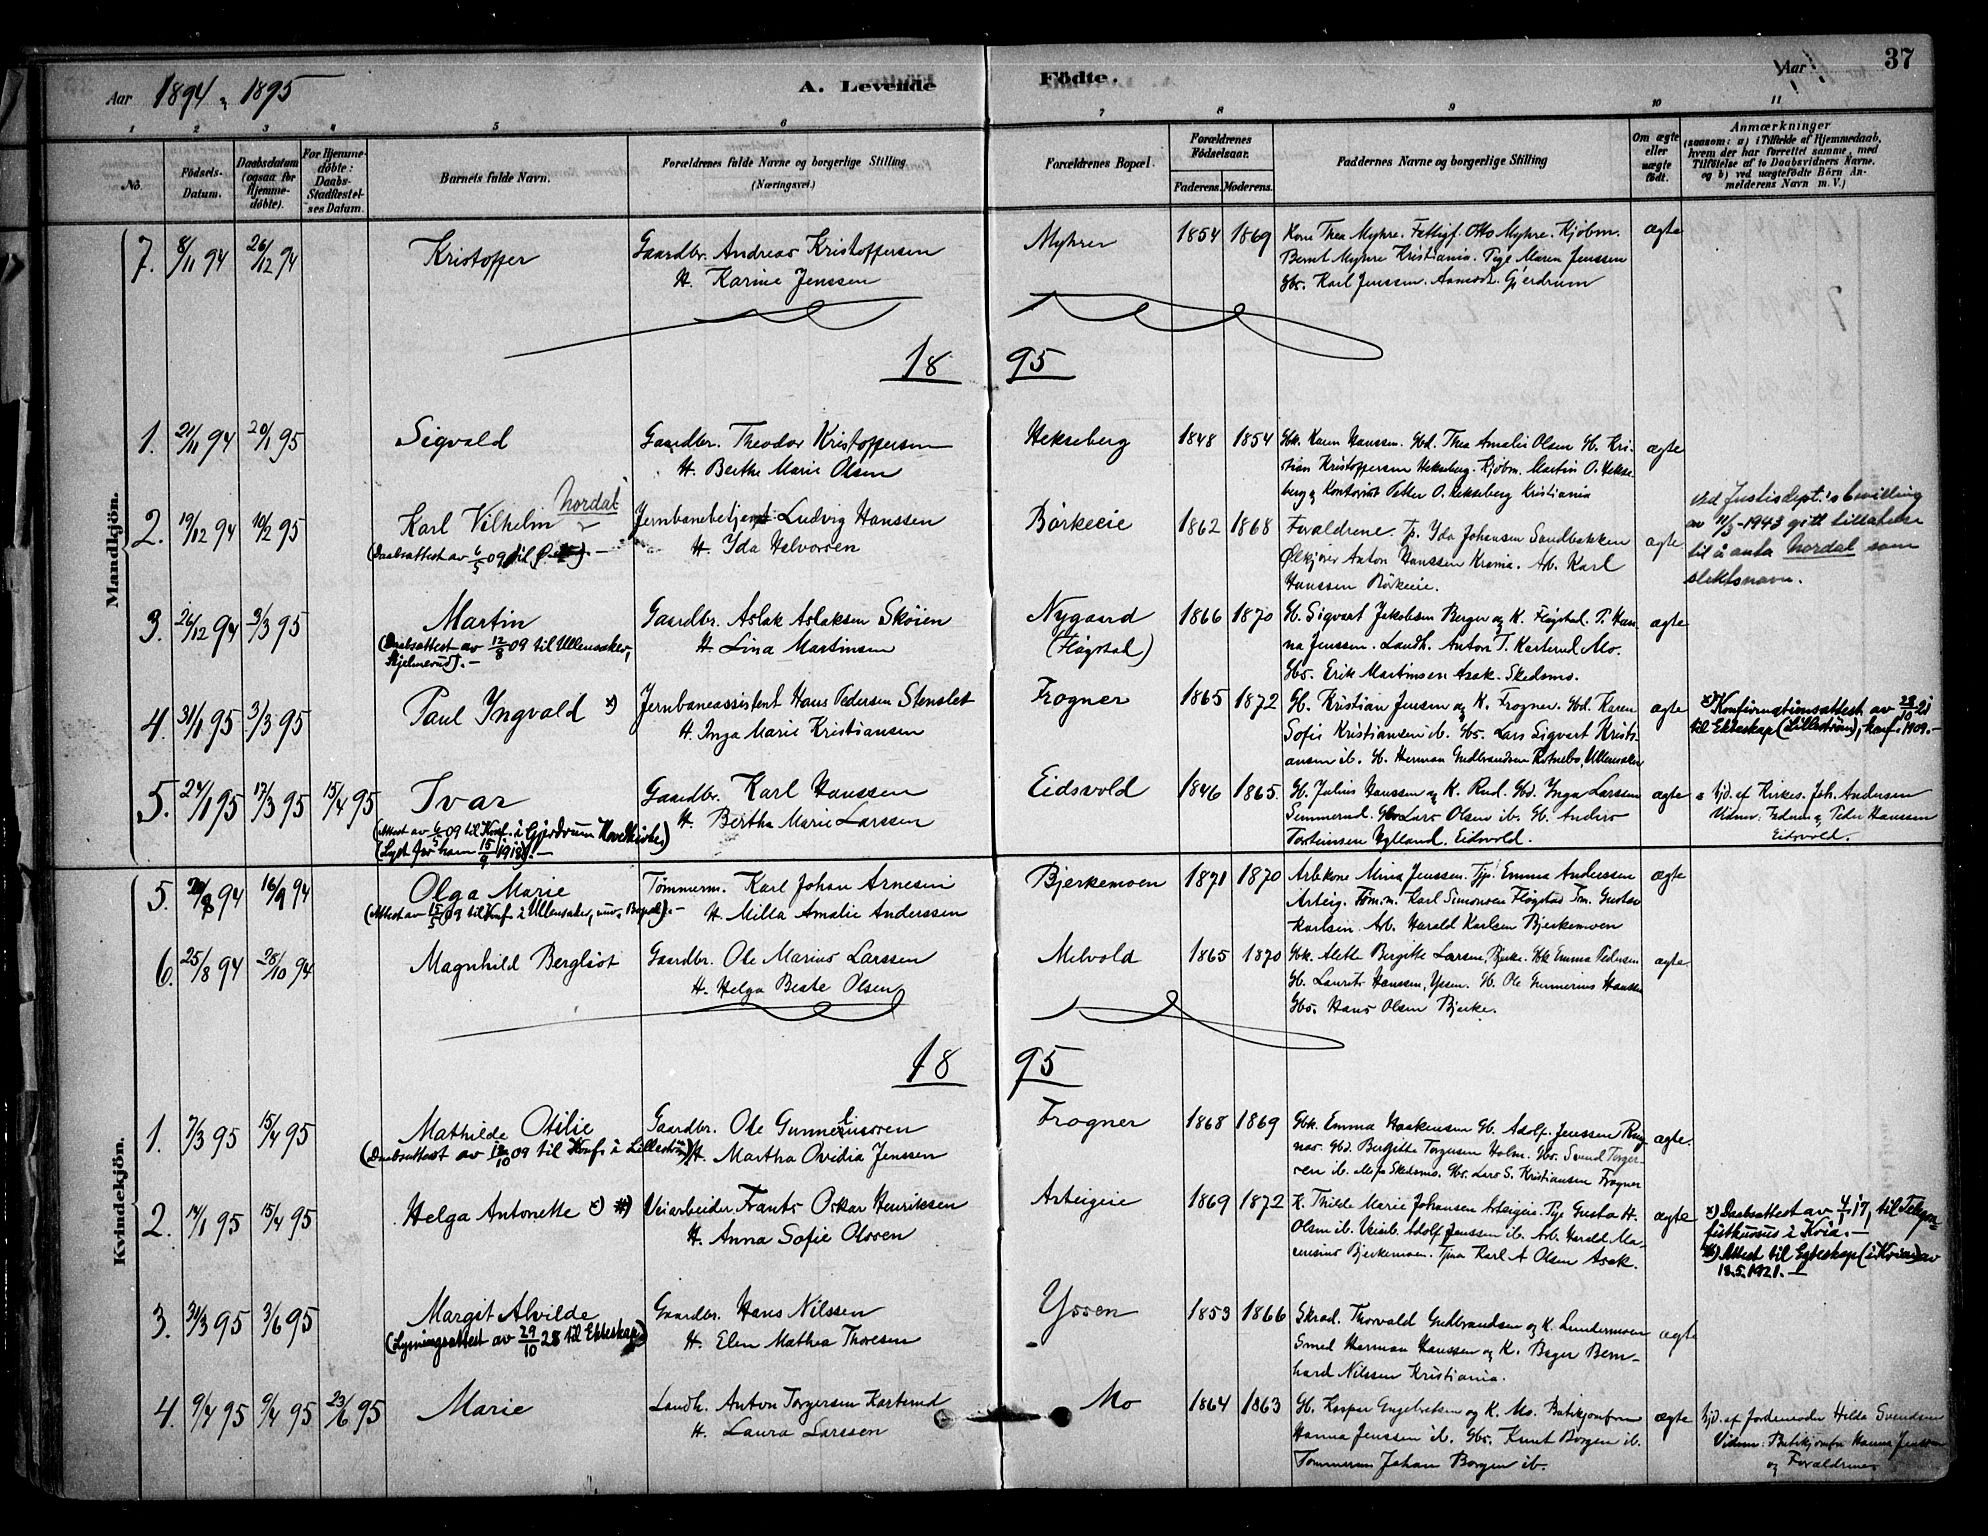 Aar 1894 & 1895
A. Levende Födte.
Aar
37
1 2 3 4 5 6 7 8 9 10 11
No.
Födsels-Datum.
Daabsdatum (ogsaa for Hjemme-döbte).
For Hjemme-döbte: Daabs-Stadfæstel-ses Datum.
Barnets fulde Navn.
Forældrenes fulde Navne og borgerlige Stilling (Næringsvei.)
Forældrenes Bopæl.
Forældrenes Födselsaar.
Faderens. Moderens.
Faddernes Navne og borgerlige Stilling
Om ægte eller uægte födt.
Anmærkninger
(saasom: a) i Tilfælde af Hjemmedaab, hvem der har forrettet samme, med Tilföielse af to Daabsvidners Navne, og b) ved uægtefödte Börn An-melderens Navn m. V.)
Mandkjön.
7. 8/11 94 26/12 94 Kristoffer
Gaardbr. Andreas Kristoffersen
H. Karine Jenssen
Myhrer 1854 1869
Kone Thea Myhre. Fattigf. Otto Myhre. Kjøbm.
Bernt Myhre Kristiania. Pige Maren Jenssen
Gbs. Karl Jenssen. Gjerdrum
ægte
18 95
1. 21/11 94 20/1 95 Sigvald
Gaardbr. Theodor Kristoffersen
H. Berthe Marie Olsen
Hekseberg 1848 1854
Gbk. Karen Hanssen. Gbd. Thea Amalie Olsen Gb. Kri-
stian Kristoffersen Hekseberg. Kjøbm. Martin O. Hekse-
berg & Kontorist Petter O. Hekseberg Kristiania
ægte
2. 19/12 94 10/2 95 Karl Vilhelm Nordal
(Daabsattest av 6/5 09 til
Jernbanebetjent Ludvig Hanssen
H. Ida Halvorsen
Börkeeie 1862 1868
Forældrene. Tp. Ida Johansen Sandbakken
Ølkjører Anton Hanssen Krania. Arb. Karl
Hanssen Börkeeie.
ægte
Ved Justisdept.'s bevilling
av 11/3-1943 gitt tillatelse
til å anta Nordal som
slektsnavn.
3. 26/12 94 3/3 95 Martin
(Daabsattest av 12/8 09 til Ullensaker,
Skjelmerud). –
Gaardbr. Aslak Aslaksen Skøien
H. Lina Martinsen
Nygaard
(Fløgstad)
1866 1870
Gb. Sigvart Jakobsen Berger og K. Fløgstad. P. Han-
na Jenssen. Landh. Anton T. Karterud Mo.
Gbs. Erik Martinsen Asak. Skedsmo.
ægte
4. 31/1 95 3/3 95 Paul Ingvald x)
Jernbaneassistent Hans Pedersen Stenslet
H. Inga Marie Kristiansen
Frogner 1865 1872
Gb. Kristian Jensen og K. Frogner. Gbd. Karen
Sofie Kristiansen ib. Gbs. Lars Sigvart Kristi-
ansen ib. Gb. Herman Gudbrandsen Ullensaker
ægte
x) Konfirmationsattest av 28/10 21
til Ekteskap (Lillestrøm), konf. 1909. –
5. 24/1 95 17/3 95 15/4 95 Ivar
(Attest av 09 til Konf. i Gjerdrum Hovedkirke)
(Lyst for ham 15/9 1918). –
Gaardbr. Karl Hanssen
H. Bertha Marie Larssen
Eidsvold 1846 1865.
Gb. Julius Hanssen og K. Rud. Gbd. Inga Larssen
Semmerud. Gbs Lars Olsen ib. Gb. Anders
Torsteinsen Nylland. Eidsvold.
ægte
hjd. af Kirkes. Joh. Andersen
Vidner: Faderen & Peder Hanssen
Eidsvold.
Kvindekjön.
5. 94 16/9 94 Olga Marie
(Attest av 15/5 09 til Konf. i Ullensaker, nuv. Bopæl). –
Tömmerm. Karl Johan Arnesen
H. Milla Amalie Anderssen
Bjerkemoen 1871 1870
Arbkone Mina Jenssen. Tjp. Emma Anderssen
Arteig. Tøm.m. Karl Simonsen Fløgstad Tm. Gustav
Karlsen. Arb. Harald Karlsen Bjerkemoen
ægte
6. 25/8 94 28/10 94 Magnhild Bergliot
Gaardbr. Ole Marius Larssen
H. Helga Beate Olsen
Melvold 1865 1870
Gbk. Alette Birgitte Larsen, Bjerke. Gbk Emma Pedersen
Gb. Laurits Hanssen, Yssen. Gb. Ole Gunnerius Hanssen
Gbs. Hans Olsen Bjerke.
ægte
18 95
1. 7/3 95 15/4 95 Mathilde Otilie
(Daabsattest av 12/10 09 til Konf. i Lillestrøm)
Gaardbr. Ole Gunneriussen
H. Martha Ovidia Jenssen
Frogner 1868 1869
Gbk. Emma Haakensen Gb. Adolf Jenssen Ring-
nes. Gbd. Bergitte Torgersen Holm. Gbs. Svend Torger-
sen ib. Skedsmo. Gbs. Lars S. Kristiansen Frogner
ægte.
2. 14/1 95 15/4 95 Helga Antonette x) #)
Veiarbeider Frants Oskar Henrikssen
H. Anna Sofie Olssen
Arteigeie 1869 1872
K. Thilde Marie Johansen Arteigeie. Pige Gusta H.
Olsen ib. Veiarb. Adolf Jenssen ib. Arb. Harald Ma-
rensius Bjerkemoen. Karl A Olsen Asak.
ægte
x) Daabsattest av 4/1 17, til Telegra-
fistkursus i Kria. –
#) Attest til Egteskap (i Kria) av
18.5.1921. –
3. 31/3 95 3/6 95 Margit Alvilde
(Lysningsattest av 29/10 28 til Ekteskap)
Gaardbr. Hans Nilssen
H. Elen Mathea Thoresen
Yssen 1853 1866
Skræd. Thorvald Gudbrandsen og K. Lundermoen
Smed Herman Hanssen og K. Bager Bern-
hard Nilssen Kristiania.
ægte
4. 9/4 95 9/4 95 23/6 95 Marie
Landh. Anton Torgersen Karterud
H. Laura Larssen
Mo 1864 1863
Gb. Kasper Engebretsen og K. Mo. Butikjomfru
Hanna Jenssen ib. Gbs. Knut Borgen ib.
Tømmerm Johan Borgen ib.
ægte
hjd. af Jordemoder Hilda Svendsen
Vidner: Butikjomfru Hanna Jenssen
og Forældrene